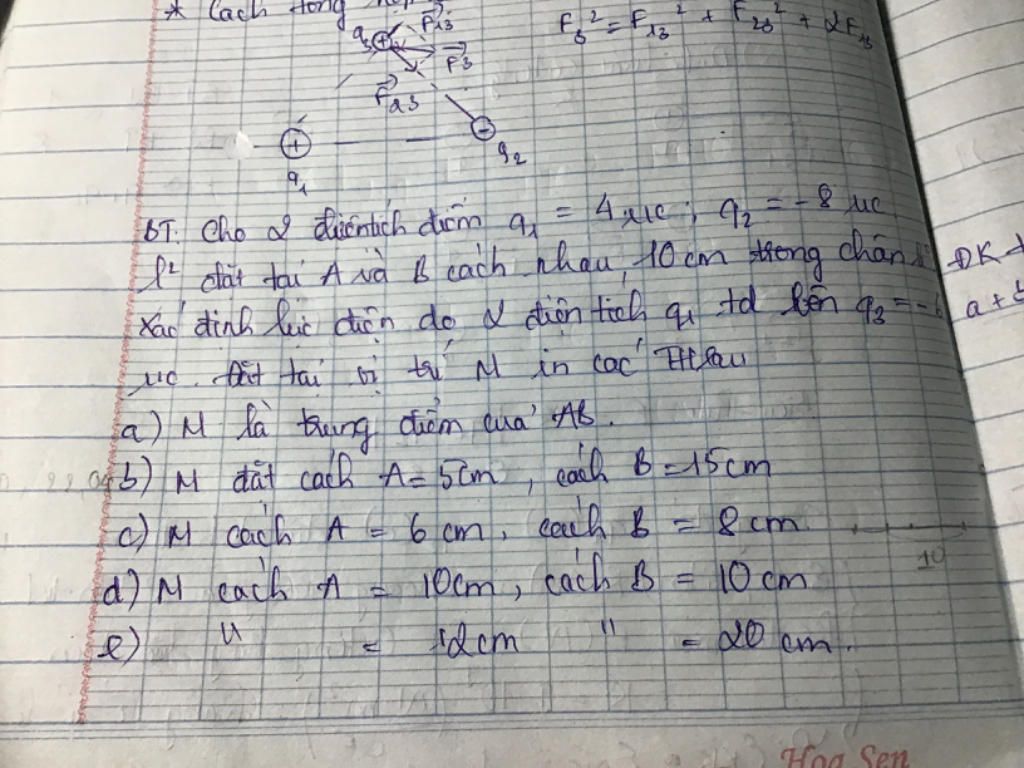 * Cách tổng
q₃ F₁₃
F₃² = F₁₃² + F₂₃² + 2F₁₃
F₃
F₂₃
q₁
q₂
BT: Cho 2 điện tích điểm q₁ = 4 μC; q₂ = -8 μC
đặt tại A và B cách nhau 10 cm trong chân
ĐK
Xác định lực điện do 2 điện tích q₁ td lên q₃ = -6
a +
μC. Đặt tại vị trí M in các TH sau
a) M là trung điểm của AB.
b) M đặt cách A = 5cm, cách B = 15cm
c) M cách A = 6 cm, cách B = 8 cm.
10
d) M cách A = 10cm, cách B = 10 cm
e) " = 12cm " = 20 cm.
Hoa Sen